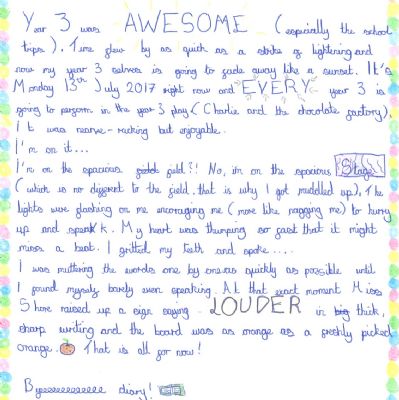 Year 3 was AWESOME (especially the school
trips). Time flew by as quick as a strike of lightening and
now my year 3 selves is going to fade away like a sunset. It's
Monday 13th July 2017 right now and EVERY year 3 is
going to perform in the year 3 play (Charlie and the chocolate factory).
It was nerve-racking but enjoyable.
I'm on it...
I'm on the spacious field?! No, im on the spacious Stage
(which is no different to the field. that is why I got muddled up). The
lights were flashing on me encouraging me (more like nagging me) to hurry
up and speak. My heart was thumping so fast that it might
miss a beat. I gritted my teeth and spoke.....
I was muttering the words one by one as quickly as possible until
I found myself barely even speaking. At that exact moment Miss
Shore raised up a sign saying LOUDER in big thick,
sharp writing and the board was as orange as a freshly picked
orange. That is all for now!
Byeeeeeeeeeeeee diary!